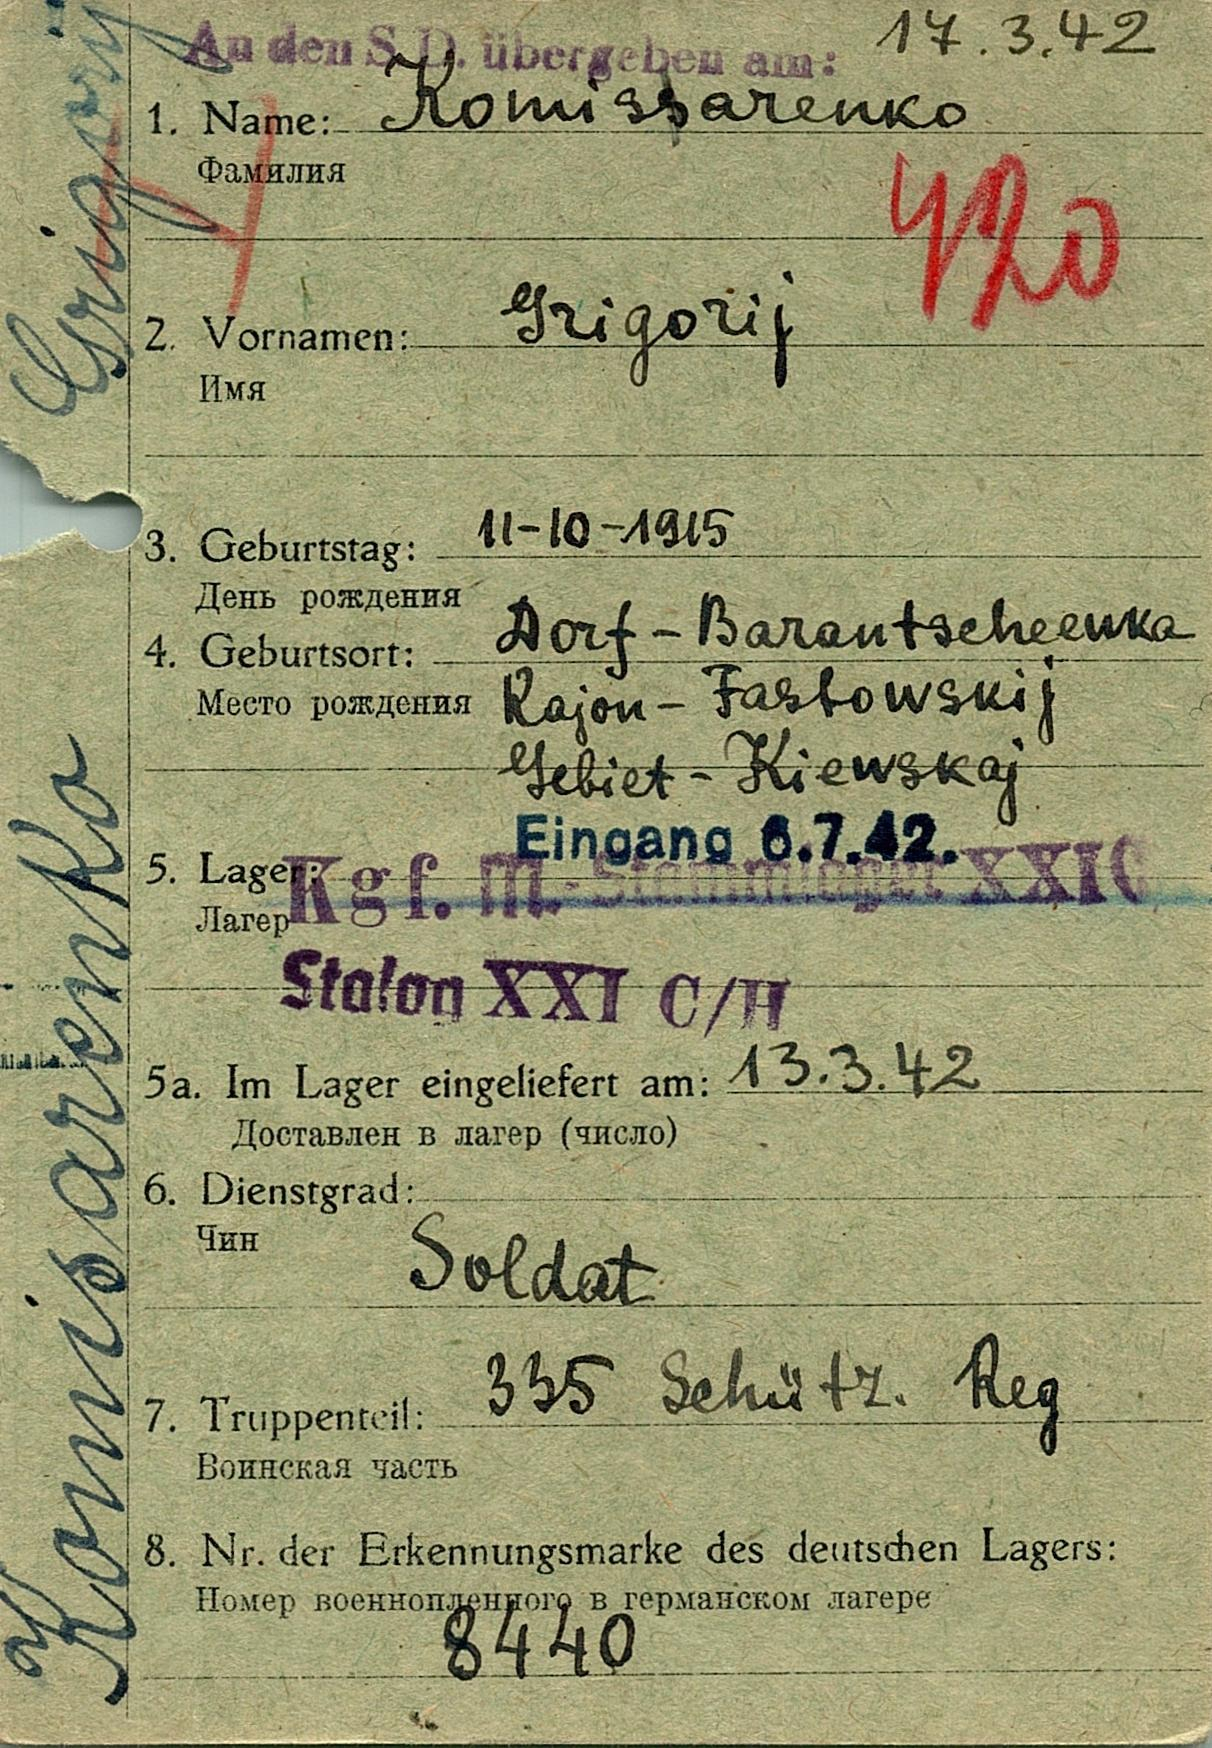 An den S.D. übergeben am: 17.3.42
1. Name: Komissarenko
Фамилия
420
2. Vornamen: Grigorij
Имя
3. Geburtstag: 11-10-1915
День рождения
4. Geburtsort: Dorf - Barantscheenka
Место рождения Rajon - Fastowskij
Gebiet - Kiewskaj
Eingang 6.7.42.
5. Lager: Kgf. M.-Stammlager XXI C
Лагер
Stalag XXI C/H
5a. Im Lager eingeliefert am: 13.3.42
Доставлен в лагер (число)
6. Dienstgrad:
Чин
Soldat
7. Truppenteil: 335 Schütz. Reg
Воинская часть
8. Nr. der Erkennungsmarke des deutschen Lagers:
Номер военнопленного в германском лагере
8440
Komisarenko Grigorij